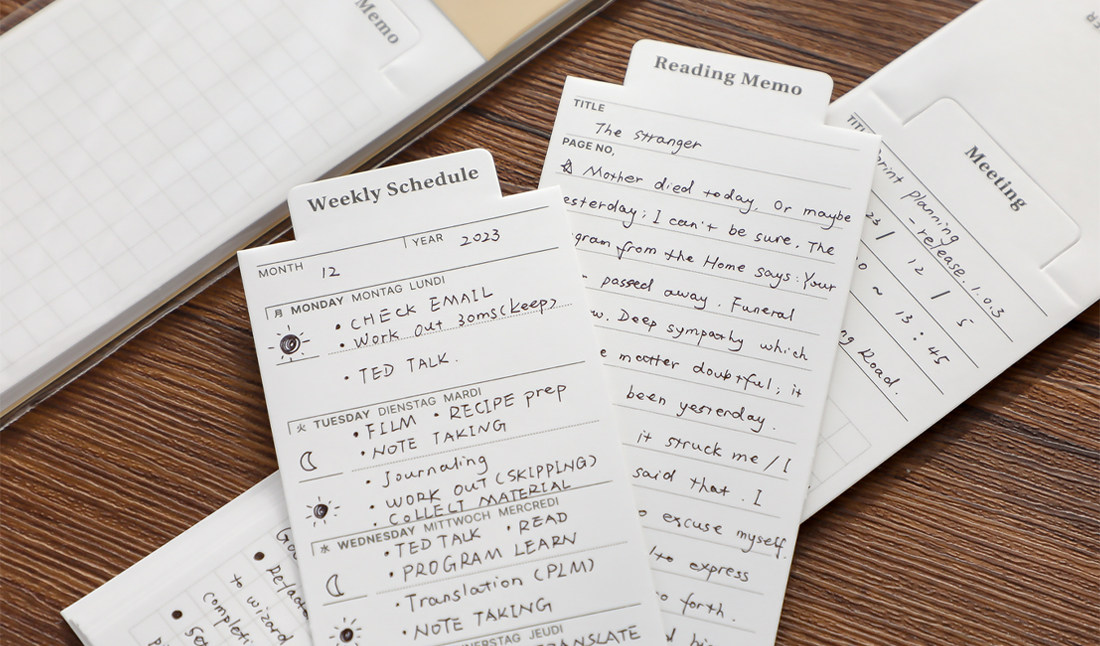 Memo
Weekly Schedule
MONTH 12 YEAR 2023
月 MONDAY MONTAG LUNDI
• CHECK EMAIL
• Work Out 30ms(keep)
• TED TALK.
火 TUESDAY DIENSTAG MARDI
• FILM • RECIPE prep
• NOTE TAKING
• Journaling
• WORK OUT (SKIPPING)
• COLLECT MATERIAL
水 WEDNESDAY MITTWOCH MERCREDI
• TED TALK • READ
• PROGRAM LEARN
• Translation (PLM)
• NOTE TAKING
JEUDI
Reading Memo
TITLE
The stranger
PAGE NO.
☆ Mother died today. Or maybe
esterday; I can't be sure. The
gram from the Home says: Your
passed away. Funeral
w. Deep sympathy which
matter doubtful; it
been yesterday.
it struck me / I
said that. I
excuse myself.
to express
forth.
Meeting
print planning
- release. 1.0.3
23 / 12 / 5
~ 13:45
Road.
• 
to wizard
•